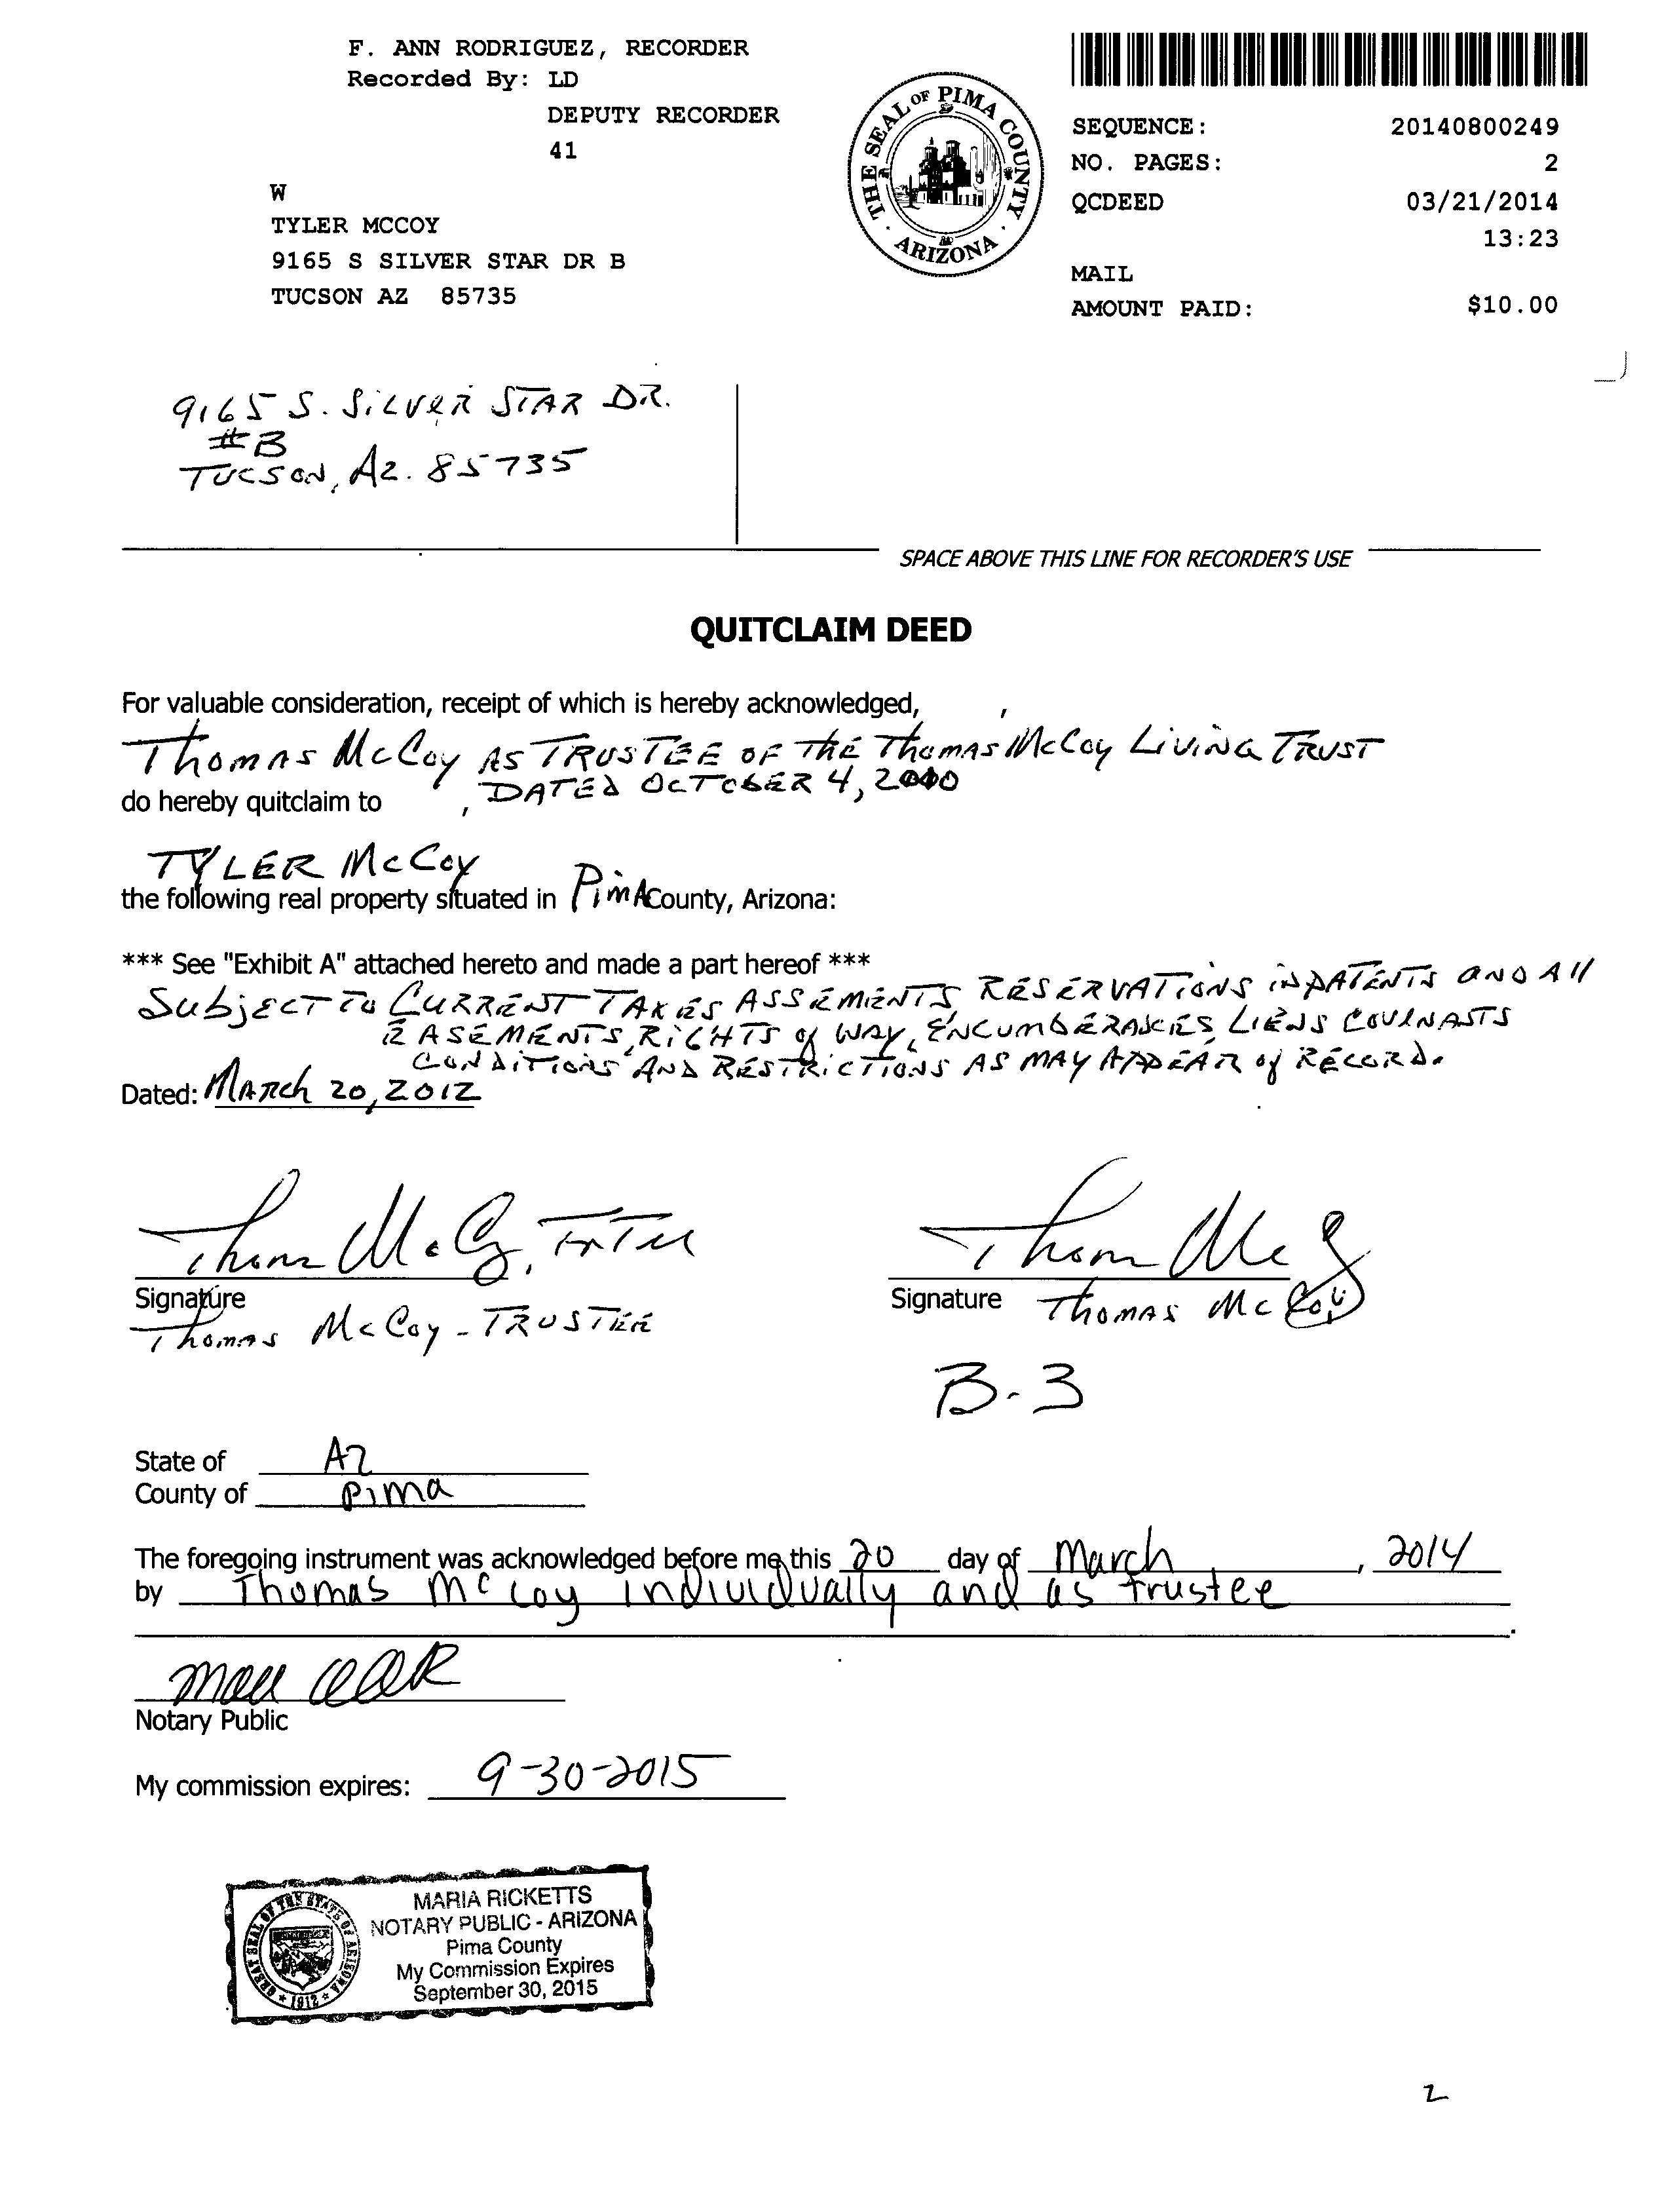 F. ANN RODRIGUEZ, RECORDER
Recorded By: LD
DEPUTY RECORDER
41
W
TYLER MCCOY
9165 S SILVER STAR DR B
TUCSON AZ 85735
THE SEAL OF PIMA COUNTY
ARIZONA
SEQUENCE: 20140800249
NO. PAGES: 2
QCDEED 03/21/2014
13:23
MAIL
AMOUNT PAID: $10.00
9165 S. SILVER STAR DR.
#B
TUCSON, AZ. 85735
SPACE ABOVE THIS LINE FOR RECORDER'S USE
QUITCLAIM DEED
For valuable consideration, receipt of which is hereby acknowledged,
Thomas McCoy AS TRUSTEE OF THE Thomas McCoy LIVING TRUST
, DATED OCTOBER 4, 2000
do hereby quitclaim to
TYLER McCoy
the following real property situated in PimA County, Arizona:
*** See "Exhibit A" attached hereto and made a part hereof ***
SubjECT TO CURRENT TAXES ASSEMENTS RESERVATIONS IN PATENTS AND All
EASEMENTS, RIGHTS of WAY, ENCUMBERANCIES LIENS COVENANTS
CONDITIONS AND RESTRICTIONS AS MAY APPEAR of RECORD.
Dated: MARch 20, 2012
Thom McCoy, TrTee
Thom McCoy
Signature
Signature
Thomas McCoy - TRUSTEE
Thomas McCoy
B-3
State of AZ
County of Pima
The foregoing instrument was acknowledged before me this 20 day of March, 2014
by Thomas McCoy individually and as trustee
Notary Public
My commission expires: 9-30-2015
GREAT SEAL OF THE STATE OF ARIZONA
1912
MARIA RICKETTS
NOTARY PUBLIC - ARIZONA
Pima County
My Commission Expires
September 30, 2015
2